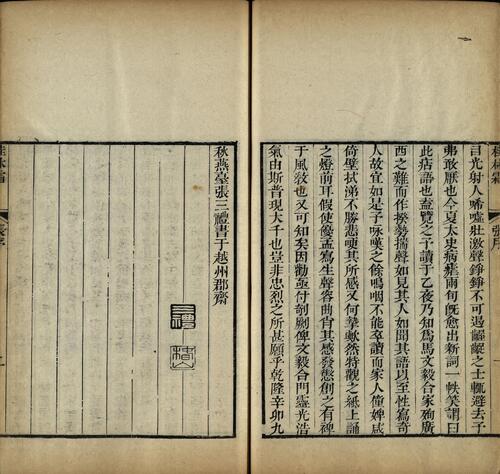 桂林霜
張序
言光射人唏噓壯激聲錚錚不可遏齷齪之士輒避去予
弗敢厭也今夏太史病瘧兩旬旣愈出新詞一帙笑謂曰
此痁語也盍覽之予讀于乙夜乃知爲馬文毅合家殉廣
西之難而作揆勢揣聲如見其人如聞其語以至性寫奇
人故宜如是予咏嘆之餘嗚咽不能卒讀而家人僮婢咸
倚壁拭涕不勝悲哽其所感又何摯歟然特觀之紙上誦
之燈前耳假使優孟寫生聲容曲肖其感發懲創之有裨
于風教也又可知矣因勸亟付剞劂俾文毅合門靈光浩
氣由斯普現大千也豈非忠烈之所甚願乎乾隆辛卯九
秋燕臺張三禮書于越州郡齋
三禮
桂林霜
張序